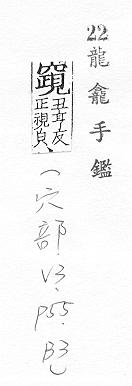 22 龍龕手鑑
竀
丑亨反
正視皃
(穴部.V3.P55.B3)